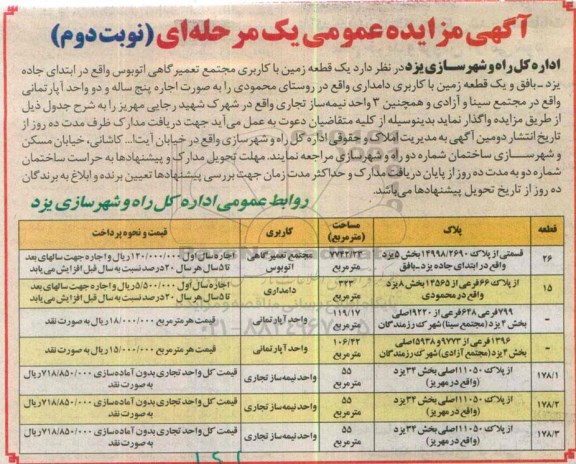 آگهی مزایده عمومی یک مرحله‌ای (نوبت دوم)
اداره کل راه و شهرسازی یزد در نظر دارد یک قطعه زمین با کاربری مجتمع تعمیرگاهی اتوبوس واقع در ابتدای جاده
یزد ـ بافق و یک قطعه زمین با کاربری دامداری واقع در روستای محمودی را به صورت اجاره پنج ساله و دو واحد آپارتمانی
واقع در مجتمع سینا و آزادی و همچنین ۳ واحد نیمه‌ساز تجاری واقع در شهرک شهید رجایی مهریز را به شرح جدول ذیل
از طریق مزایده واگذار نماید بدینوسیله از کلیه متقاضیان دعوت به عمل می‌آید جهت دریافت مدارک ظرف مدت ده روز از
تاریخ انتشار دومین آگهی به مدیریت املاک و حقوقی اداره کل راه و شهرسازی واقع در خیابان آیت‌ا... کاشانی، خیابان مسکن
و شهرسازی ساختمان شماره دو راه و شهرسازی مراجعه نمایند. مهلت تحویل مدارک و پیشنهادها به حراست ساختمان
شماره دو به مدت ده روز از پایان دریافت مدارک و حداکثر مدت زمان جهت بررسی پیشنهادها تعیین برنده و ابلاغ به برندگان
ده روز از تاریخ تحویل پیشنهادها می‌باشد.
روابط عمومی اداره کل راه و شهرسازی یزد
قطعه پلاک مساحت (مترمربع) کاربری قیمت و نحوه پرداخت
۲۶ قسمتی از پلاک ۱۴۹۹۸/۲۶۹۰ بخش ۵ یزد واقع در ابتدای جاده یزد ـ بافق ۷۷۴۲/۲۳ مجتمع تعمیرگاهی اتوبوس اجاره سال اول ۱۲۰/۰۰۰/۰۰۰ ریال و اجاره جهت سالهای بعد تا ۵ سال هر سال ۲۰ درصد نسبت به سال قبل افزایش می‌یابد
۱۵ از پلاک ۶۶ فرعی از ۱۲۵۶۵ بخش ۸ یزد واقع در محمودی ۳۲۳ دامداری اجاره سال اول ۵/۵۰۰/۰۰۰ ریال و اجاره جهت سالهای بعد تا ۵ سال هر سال ۲۰ درصد نسبت به سال قبل افزایش می‌یابد
- ۷۹۹ فرعی از ۶۲۸ فرعی از ۹۲۲۰ اصلی بخش ۴ یزد (مجتمع سینا) شهرک رزمندگان ۱۱۹/۱۷ واحد آپارتمانی قیمت هر مترمربع ۱۸/۰۰۰/۰۰۰ ریال به صورت نقد
- ۱۳۹۶ فرعی از ۹۷۷۳ و ۵۹۳۸ اصلی بخش ۴ یزد (مجتمع آزادی) شهرک رزمندگان ۱۰۶/۲۲ واحد آپارتمانی قیمت هر مترمربع ۱۵/۰۰۰/۰۰۰ ریال به صورت نقد
۱۷۸/۱ از پلاک ۱۱۰۵۰ اصلی بخش ۳۴ یزد (واقع در مهریز) ۵۵ مترمربع واحد نیمه‌ساز تجاری قیمت کل واحد تجاری بدون آماده‌سازی ۷۱۸/۸۵۰/۰۰۰ ریال به صورت نقد
۱۷۸/۲ از پلاک ۱۱۰۵۰ اصلی بخش ۳۴ یزد (واقع در مهریز) ۵۵ مترمربع واحد نیمه‌ساز تجاری قیمت کل واحد تجاری بدون آماده‌سازی ۷۱۸/۸۵۰/۰۰۰ ریال به صورت نقد
۱۷۸/۳ از پلاک ۱۱۰۵۰ اصلی بخش ۳۴ یزد (واقع در مهریز) ۵۵ مترمربع واحد نیمه‌ساز تجاری قیمت کل واحد تجاری بدون آماده‌سازی ۷۱۸/۸۵۰/۰۰۰ ریال به صورت نقد